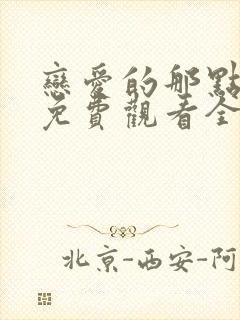 戀愛的那點
免費觀看全
北京-西安-阿